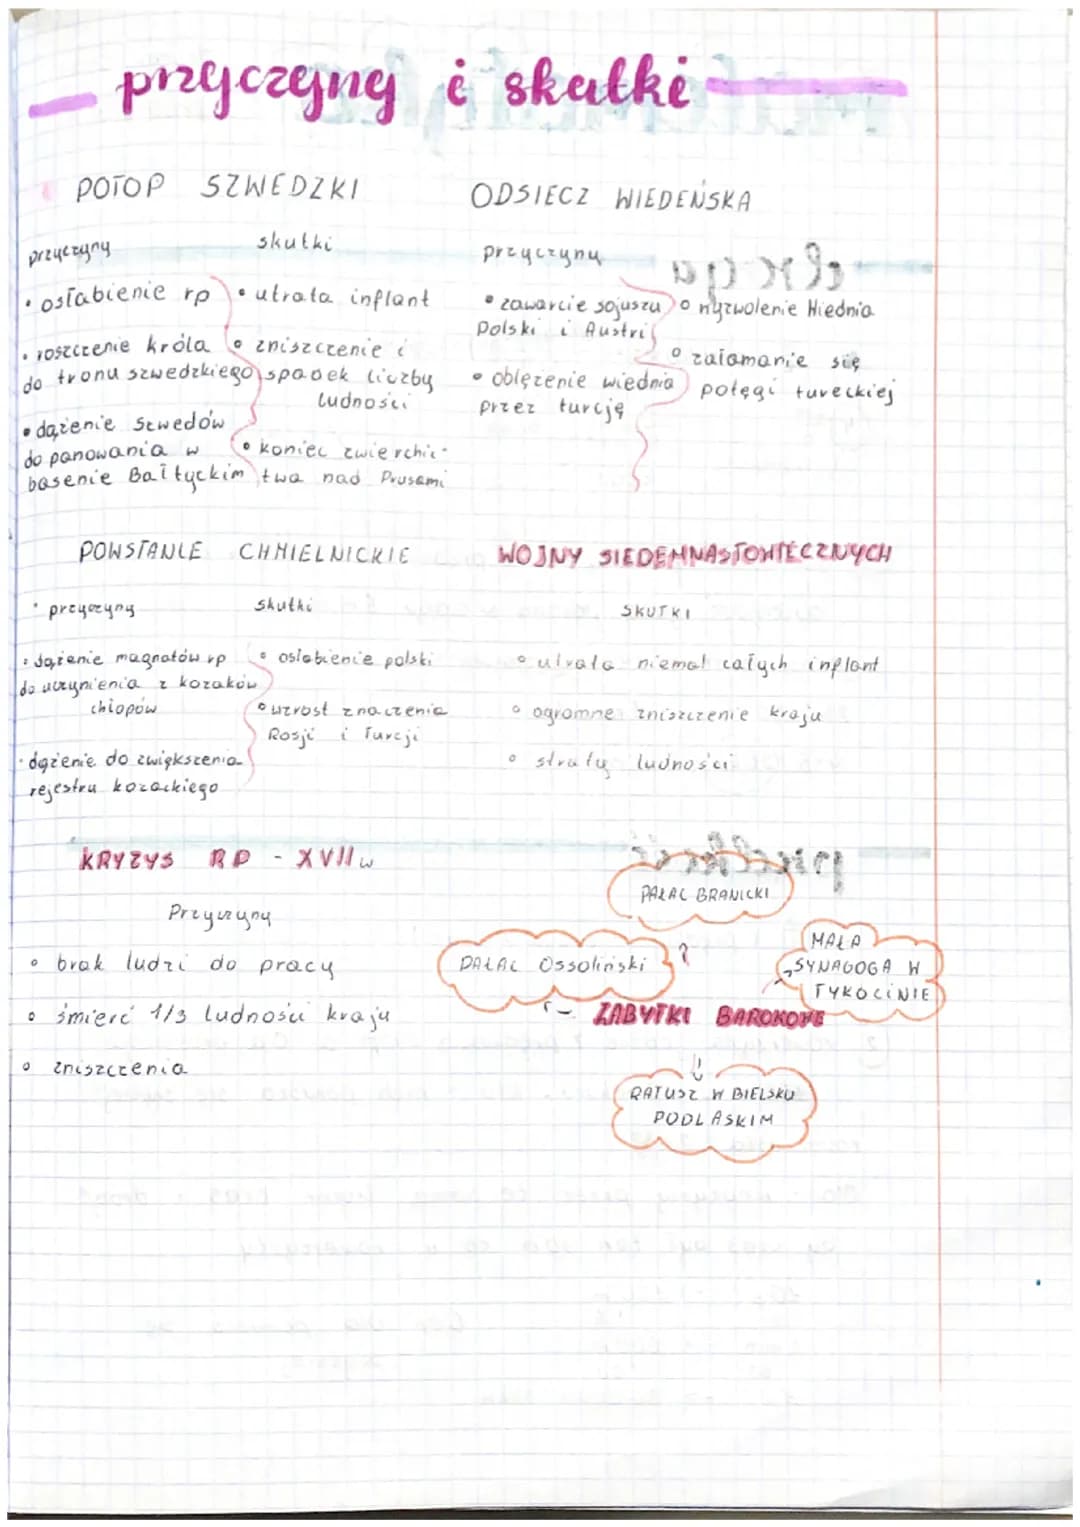 przyczyny i skutki
POTOP SZWEDZKI
przyczyny
skutki
• osłabienie rp
• roszczenie króla
do tronu szwedzkiego
• dążenie Szwedów
do panowania w
basenie Bałtyckim
• utrata inflant
• zniszczenie i
spadek liczby
ludności
• koniec zwierchic-
twa nad Prusami
ODSIECZ WIEDEŃSKA
przyczyny
• zawarcie sojuszu
Polski i Austri
• oblężenie wiednia
przez turcję
• wyzwolenie Wiednia
• załamanie się
potęgi tureckiej
POWSTANIE CHMIELNICKIE
• przyczyny
skutki
• dążenie magnatów rp
do uczynienia z kozaków
chłopów
• dążenie do zwiększenia
rejestru kozackiego
• osłabienie polski
• wzrost znaczenia
Rosji i Turcji
WOJNY SIEDEMNASTOWIECZNYCH
SKUTKI
• utrata niemal całych inflant
• ogromne zniszczenie kraju
• straty ludności
KRYZYS RP - XVII w
Przyczyny
• brak ludzi do pracy
• śmierć 1/3 ludności kraju
• zniszczenia
PAŁAC BRANICKI
PAŁAC Ossoliński
MAŁA
SYNAGOGA W
TYKOCINIE
ZABYTKI BAROKOWE
RATUSZ W BIELSKU
PODLASKIM